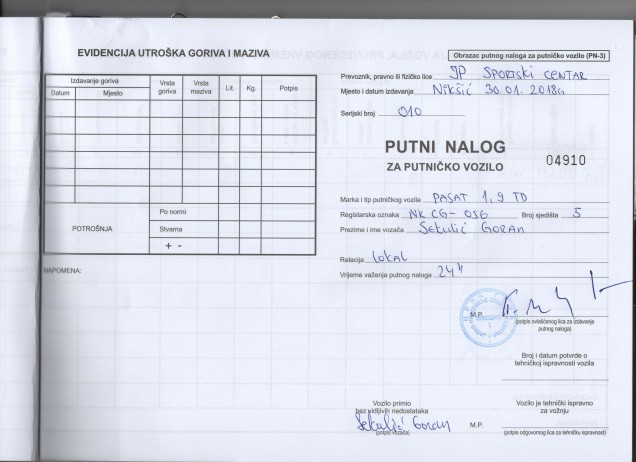 EVIDENCIJA UTROŠKA GORIVA I MAZIVA
Izdavanje goriva
Vrsta goriva
Vrsta maziva
Lit.
Kg.
Potpis
Datum
Mjesto
POTROŠNJA
Po normi
Stvarna
+ -
NAPOMENA:
Obrazac putnog naloga za putničko vozilo (PN-3)
Prevoznik, pravno ili fizičko lice JP SPORTSKI CENTAR
Mjesto i datum izdavanja Nikšić 30.01.2018G
Serijski broj 010
PUTNI NALOG
ZA PUTNIČKO VOZILO
04910
Marka i tip putničkog vozila PASAT 1,9 TD
Registarska oznaka NK CG-056 Broj sjedišta 5
Prezime i ime vozača Sekulić Goran
Relacija Lokal
Vrijeme važenja putnog naloga 24h
M.P.
(potpis ovlašćenog lica za izdavanje
putnog naloga)
Broj i datum potvrde o
tehničkoj ispravnosti vozila
Vozilo primio
bez vidljivih nedostataka
Sekulić Goran
(potpis vozača)
Vozilo je tehnički ispravno
za vožnju
M.P.
(potpis odgovornog lica za tehničku ispravnost)